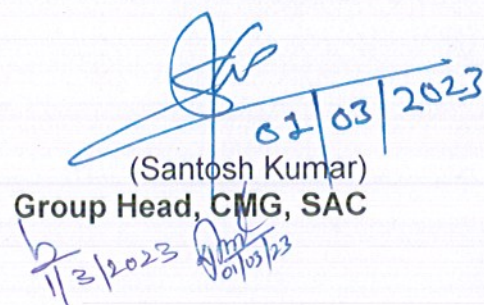 01/03/2023
(Santosh Kumar)
Group Head, CMG, SAC
1/3/2023
01/03/23